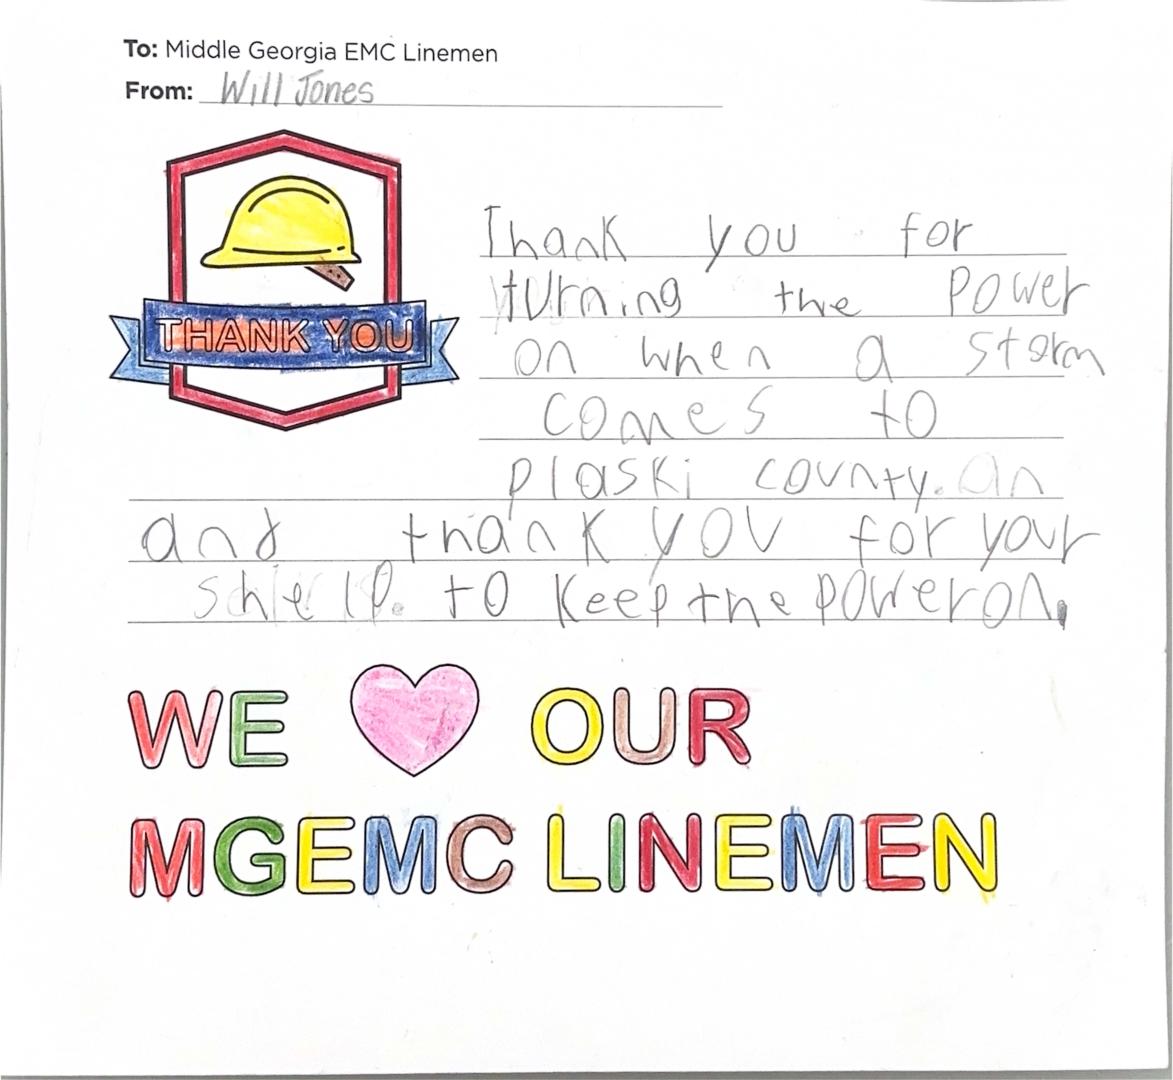 To: Middle Georgia EMC Linemen
From: Will Jones
THANK YOU
Thank you for
turning the power
on when a storm
comes to
plaski county. an
and thank you for your
shielp. to keep the power on.
WE OUR
MGEMC LINEMEN